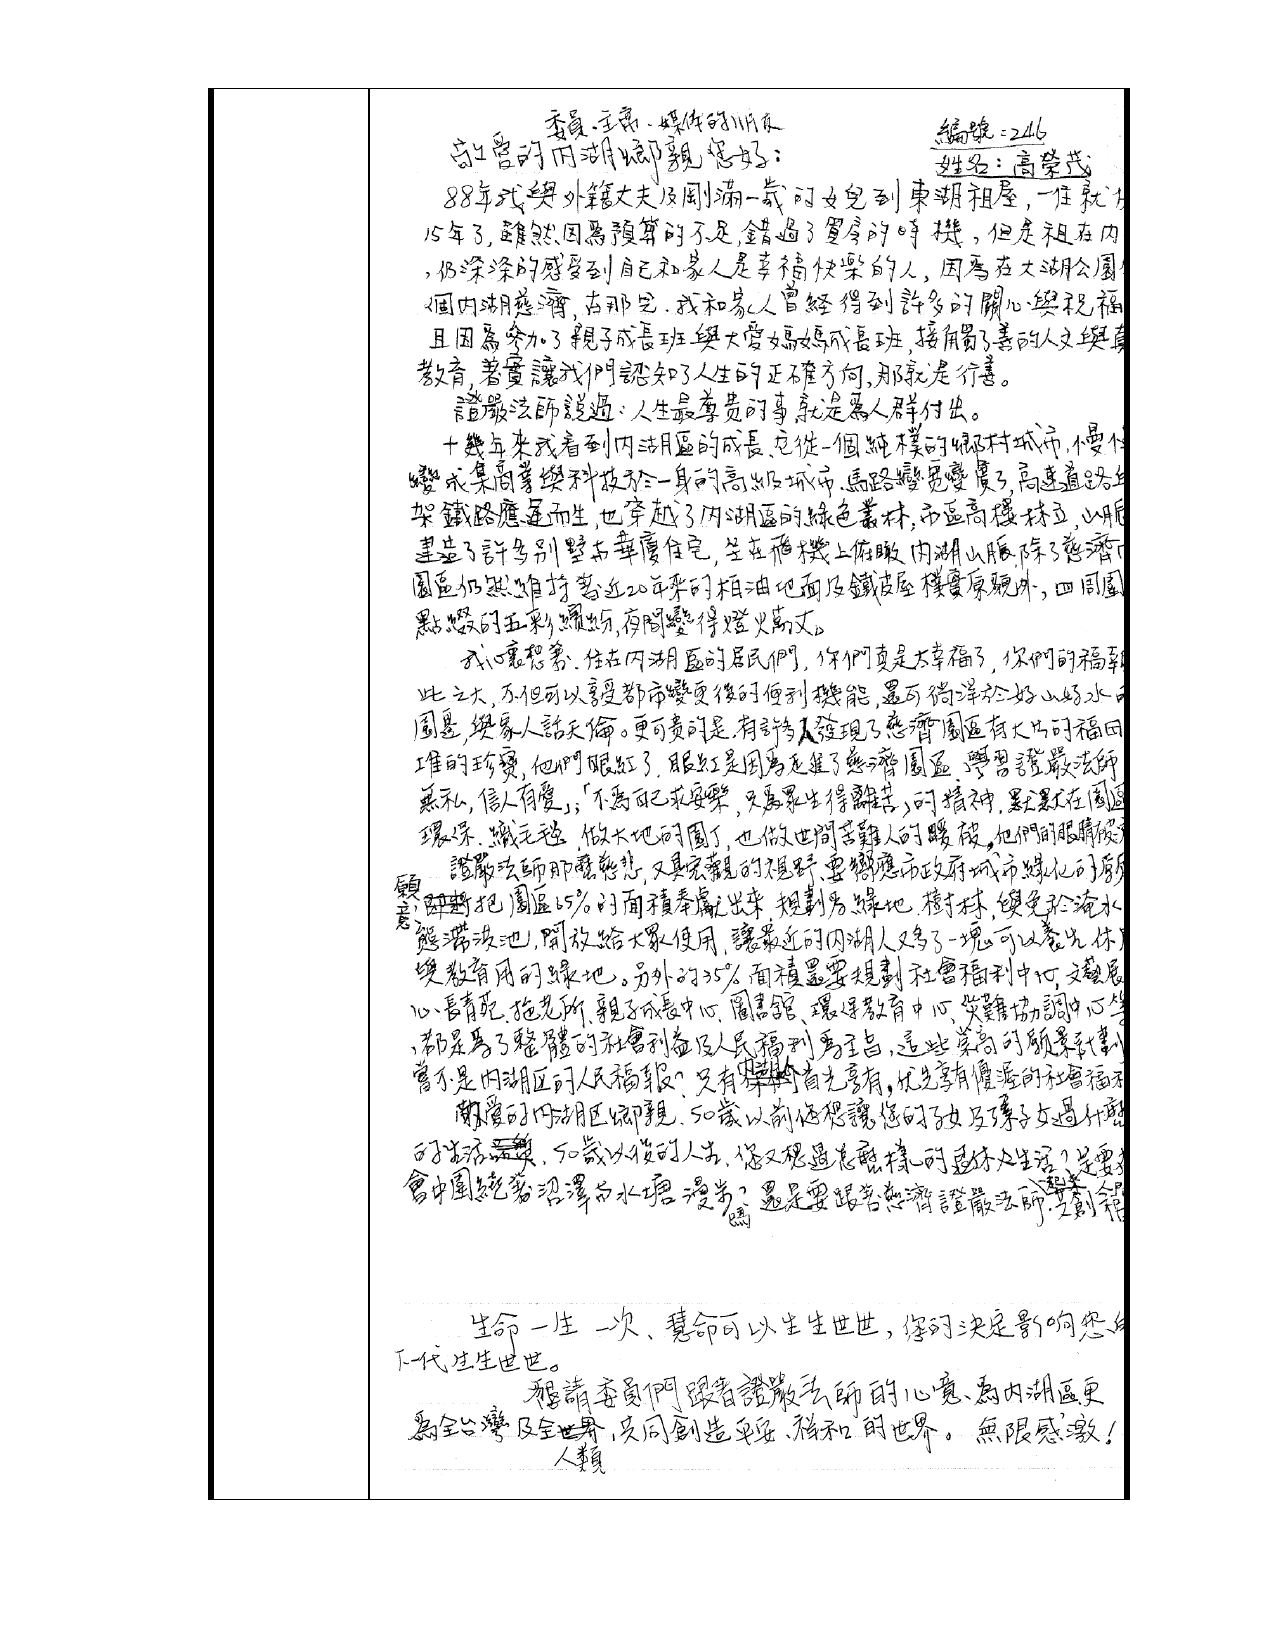 委員、主席、媒体的朋友
編號:246
敬愛的内湖鄉親您好:
姓名:高榮茂
88年我與外籍丈夫及剛滿一歲的女兒到東湖租屋,一住就
15年了,雖然因為預算的不足,錯過了買房的時機,但是租在内
,仍深深的感受到自己和家人是幸福快樂的人,因為在大湖公園
個内湖慈濟,在那兒.我和家人曾經得到許多的關心與祝福
且因為參加了親子成長班與大愛媽媽成長班,接觸了善的人文與真
教育,著實讓我們認知了人生的正確方向,那就是行善。
證嚴法師說過:人生最尊貴的事就是為人群付出。
十幾年來我看到内湖區的成長.它從一個純樸的鄉村城市,慢慢
變成集商業與科技於一身的高級城市.馬路變寬變廣了,高速道路
架鐵路應運而生,也穿越了内湖區的綠色叢林,市區高樓林立,山脈
建造了許多別墅與華廈住宅,坐在飛機上俯瞰内湖山脈,除了慈濟
園區仍然維持著近20年來的柏油地面及鐵皮屋樸實原貌外,四周圍
點綴的五彩繽紛,夜間變得燈火萬丈。
我心裏想著.住在内湖區的居民們,你們真是太幸福了,你們的福報
此之大,不但可以享受都市變更後的便利機能,還可徜徉於好山好水
園邊,與家人話天倫。更可貴的是.有許多人發現了慈濟園區有大片的福田
堆的珍寶,他們眼紅了.眼紅是因為走進了慈濟園區.學習證嚴法師
無私,信人有愛」;「不為自己求安樂,只為眾生得離苦」的精神.默默在園區
環保.織毛毯.做大地的園丁,也做世間苦難人的暖被,他們的眼睛被
證嚴法師那麼慈悲,又具宏觀的視野.要響應市政府城市綠化的願
願意,把園區65%的面積奉獻出來,規劃為綠地.樹林,與免於淹水
態滯洪池,開放給大眾使用.讓最近的内湖人又多了一塊可以養生休
與教育用的綠地。另外的35%面積還要規劃社會福利中心,文藝展
心.長青苑.托老所.親子成長中心.圖書館.環保教育中心.災難協調中心等
,都是為了整體的社會利益及人民福利為主旨,這些崇高的願景計劃
嘗不是内湖区的人民福報?只有内湖人首先享有,优先享有優渥的社會福利
敬愛的内湖区鄉親.50歲以前您想讓您的子女及孫子女過什麼
的生活.50歲以後的人生.您又想過怎麼樣的退休生活?是要
會中圍繞著沼澤與水塘漫步嗎?還是要跟著慈濟證嚴法師一起來共創
生命一生一次、慧命可以生生世世,您的決定影响您
下一代生生世世。
懇請委員們跟著證嚴法師的心意、為内湖區更
為全台灣及全人類,共同創造平安、祥和的世界。無限感激!